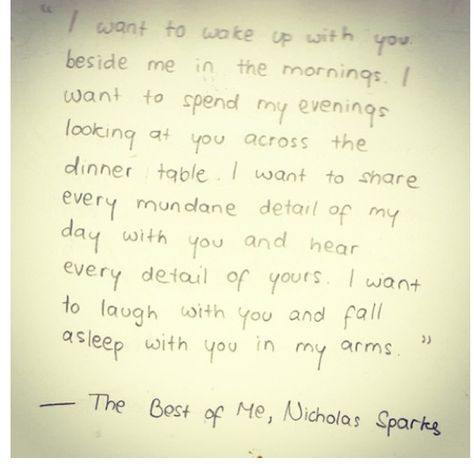 “ I want to wake up with you
beside me in the mornings. I
want to spend my evenings
looking at you across the
dinner table. I want to share
every mundane detail of my
day with you and hear
every detail of yours. I want
to laugh with you and fall
asleep with you in my arms. ”
— The Best of Me, Nicholas Sparks